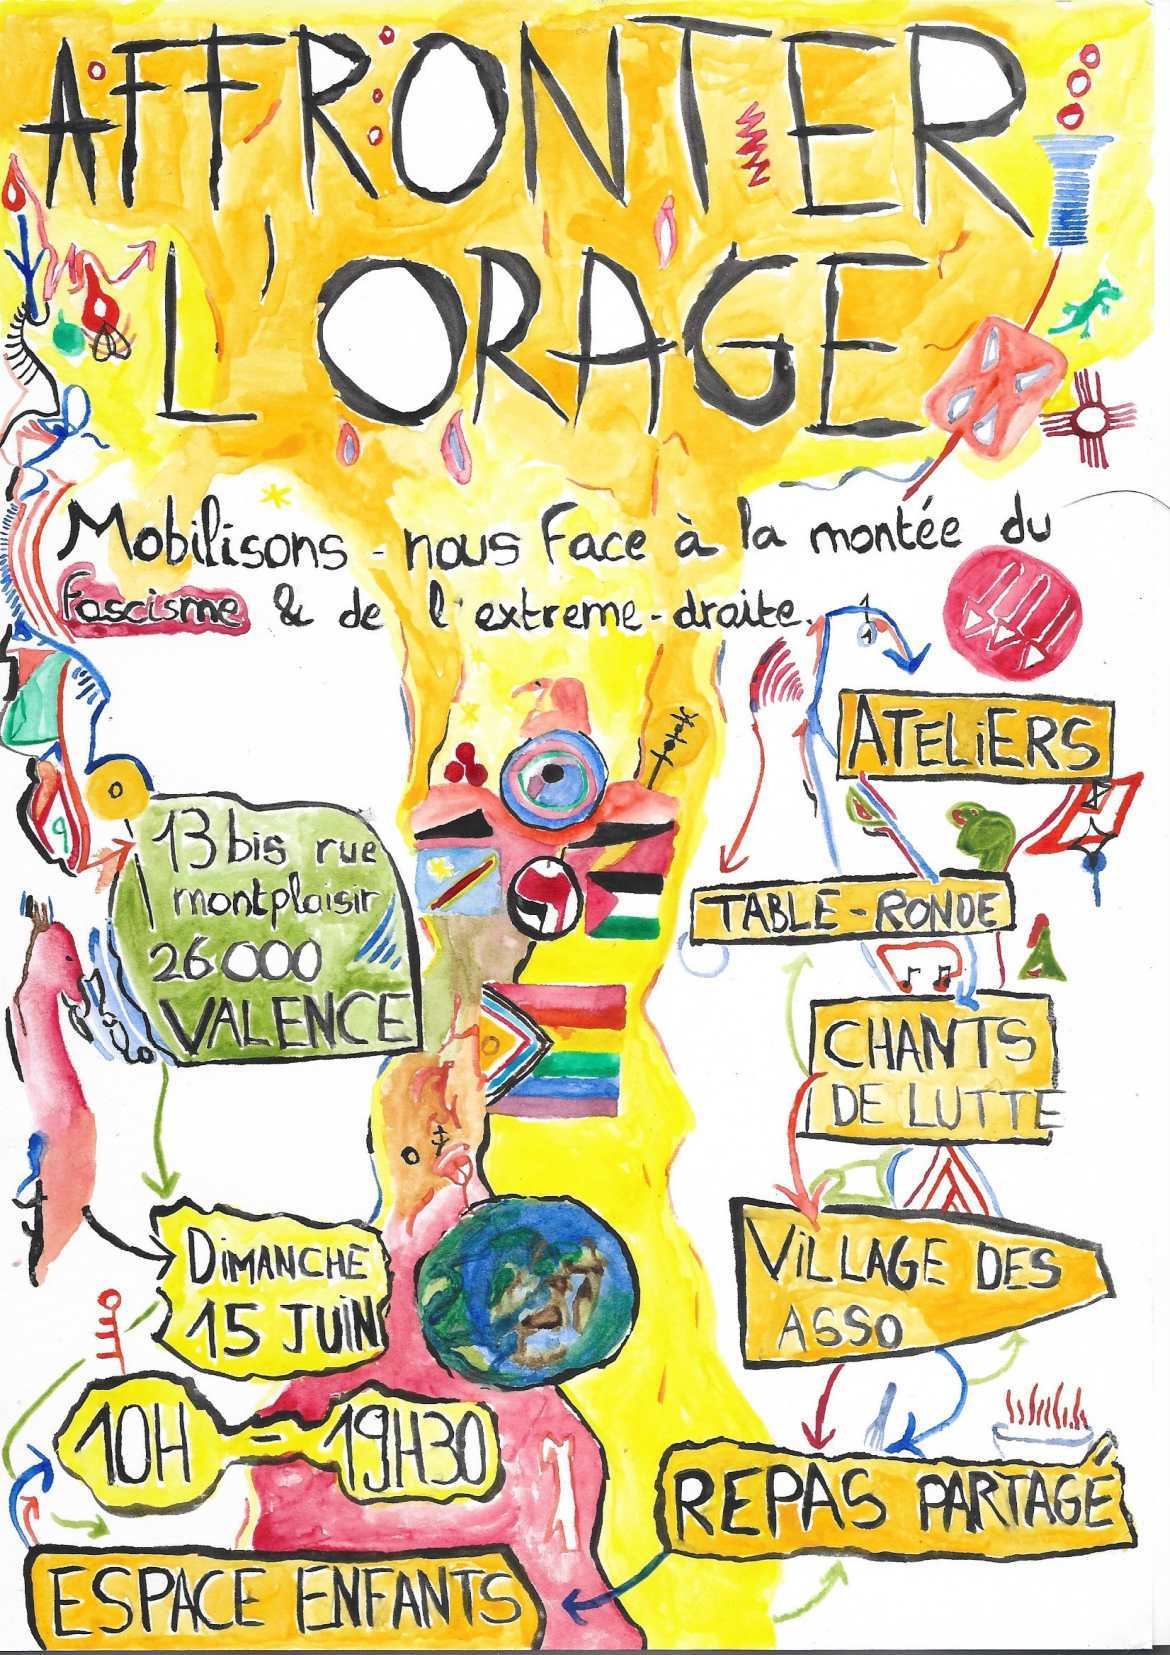 AFFRONTER
L'ORAGE
Mobilisons-nous Face à la montée du
fascisme & de l'extreme-draite.
ATELiERS
13 bis rue
montplaisir
26000
VALENCE
TABLE-RONDE
CHANTS
DE LUTTE
DiMANCHE
15 JUiN
ViLLAGE DES
ASSO
10H - 19H30
REPAS PARTAGÉ
ESPACE ENFANTS